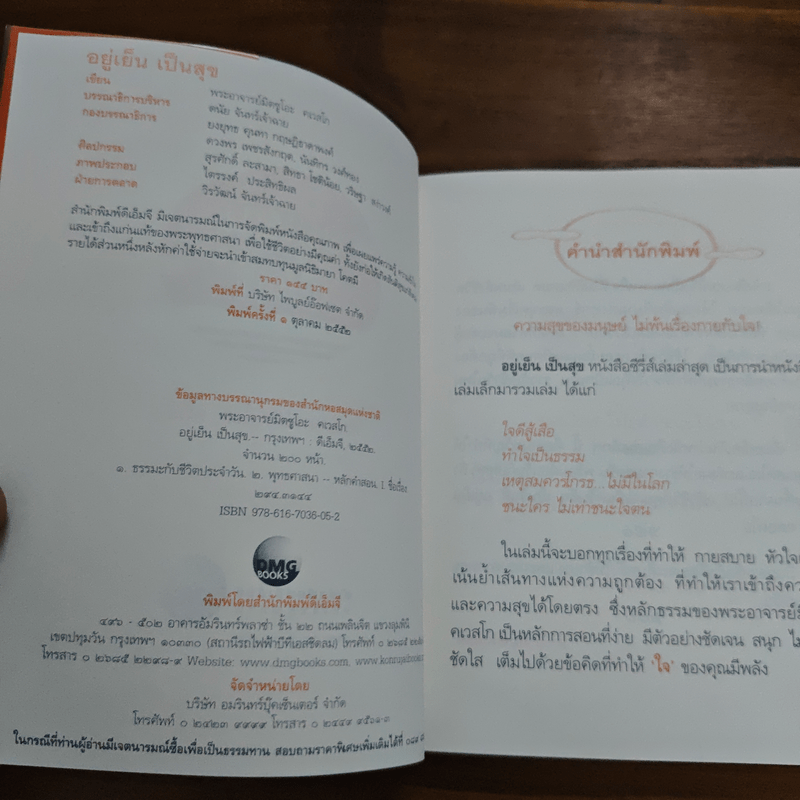 อยู่เย็น เป็นสุข
เขียน พระอาจารย์มิตซูโอะ คเวสโก
บรรณาธิการบริหาร ดนัย จันทร์เจ้าฉาย
กองบรรณาธิการ ยงยุทธ คุนทา กฤษฎิธาดาพงศ์
ดวงพร เพชรสังกฤต, นันทิกร วงศ์ทอง
ศิลปกรรม สุรศักดิ์ ละสามา, สิทธา โชติน้อย, วริษฐา
ภาพประกอบ ไตรรงค์ ประสิทธิผล
ฝ่ายการตลาด วิรวัฒน์ จันทร์เจ้าฉาย
สำนักพิมพ์ดีเอ็มจี มีเจตนารมณ์ในการจัดพิมพ์หนังสือคุณภาพ เพื่อเผยแพร่ความรู้
และเข้าถึงแก่นแท้ของพระพุทธศาสนา เพื่อใช้ชีวิตอย่างมีคุณค่า
รายได้ส่วนหนึ่งหลังหักค่าใช้จ่ายจะนำเข้าสมทบทุนมูลนิธิมายา โคตมี
ราคา ๑๔๕ บาท
พิมพ์ที่ บริษัท ไพบูลย์อ๊อฟเซต จำกัด
พิมพ์ครั้งที่ ๑ ตุลาคม ๒๕๕๒
ข้อมูลทางบรรณานุกรมของสำนักหอสมุดแห่งชาติ
พระอาจารย์มิตซูโอะ คเวสโก.
อยู่เย็น เป็นสุข.-- กรุงเทพฯ : ดีเอ็มจี, ๒๕๕๒.
จำนวน ๒๐๐ หน้า.
๑. ธรรมะกับชีวิตประจำวัน. ๒. พุทธศาสนา -- หลักคำสอน. I. ชื่อเรื่อง
๒๙๔.๓๑๔๔
ISBN 978-616-7036-05-2
DMG
BOOKS
พิมพ์โดยสำนักพิมพ์ดีเอ็มจี
๔๙๖ - ๕๐๒ อาคารอัมรินทร์พลาซ่า ชั้น ๒๒ ถนนเพลินจิต แขวงลุมพินี
เขตปทุมวัน กรุงเทพฯ ๑๐๓๓๐ (สถานีรถไฟฟ้าบีทีเอสชิดลม) โทรศัพท์ ๐ ๒๖๘๕
โทรสาร ๐ ๒๖๘๕ ๒๒๙๘-๙ Website: www.dmgbooks.com,
จัดจำหน่ายโดย
บริษัท อมรินทร์บุ๊คเซ็นเตอร์ จำกัด
โทรศัพท์ ๐ ๒๔๒๓ ๙๙๙๙ โทรสาร ๐ ๒๔๔๙ ๙๕๖๑-๓
ในกรณีที่ท่านผู้อ่านมีเจตนารมณ์ซื้อเพื่อเป็นธรรมทาน สอบถามราคาพิเศษเพิ่มเติมได้ที่
คำนำสำนักพิมพ์
ความสุขของมนุษย์ ไม่พ้นเรื่องกายกับใจ!
อยู่เย็น เป็นสุข หนังสือซีรี่ส์เล่มล่าสุด เป็นการนำหนัง
เล่มเล็กมารวมเล่ม ได้แก่
ใจดีสู้เสือ
ทำใจเป็นธรรม
เหตุสมควรโกรธ...ไม่มีในโลก
ชนะใคร ไม่เท่าชนะใจตน
ในเล่มนี้จะบอกทุกเรื่องที่ทำให้ กายสบาย หัวใจ
เน้นย้ำเส้นทางแห่งความถูกต้อง ที่ทำให้เราเข้าถึง
และความสุขได้โดยตรง ซึ่งหลักธรรมของพระอาจารย์
คเวสโกเป็นหลักการสอนที่ง่าย มีตัวอย่างชัดเจน สนุก
ชัดใส เต็มไปด้วยข้อคิดที่ทำให้ 'ใจ' ของคุณมีพลัง